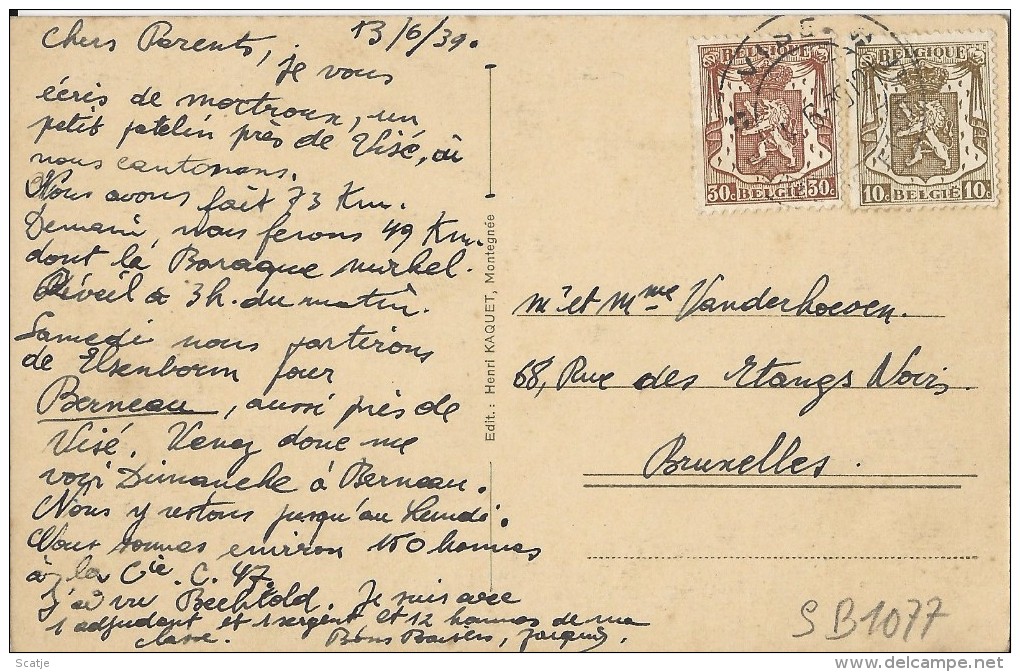 13/6/39.
Chers Parents, je vous
écris de mortroux, un
petit patelin près de Visé, où
nous cantonons.
Nous avons fait 73 Km.
Demain, nous ferons 49 Km.
dont la Baraque michel.
Réveil à 3h. du matin.
Samedi nous partirons
de Elsenborn pour
Berneau, aussi près de
Visé. Venez donc me
voir Dimanche à Berneau.
Nous y restons jusqu'au lundi.
Nous sommes environ 150 hommes
à la Cie. C. 47.
J'ai vu Bechtold. Je suis avec
1 adjudant et 1 sergent et 12 hommes de ma
classe. Bons Baisers, Jacques.
Edit.: Henri KAQUET, Montegnée
BELGIQUE
30c BELGIË 30c
BELGIQUE
10c BELGIË 10c
Mr et Mme Vanderhoeven.
68, Rue des Etangs Noirs
Bruxelles.
SB1077
Scatje
delcampe.net